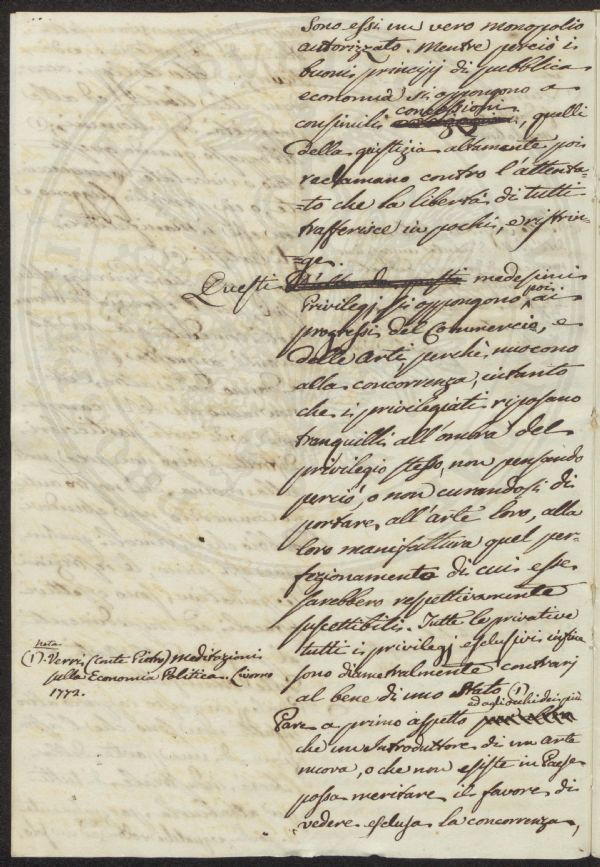 Sono essi un vero monopolio
autorizzato. Mentre perciò i
buoni principj di pubblica
economia si oppongono a
consimili concessioni, quelli
della giustizia altamente poi
reclamano contro l'attenta=
=to che la libertà di tutti
trasferisce in pochi, e ristrin=
=ge.
Questi medesimi
Privilegj si oppongono poi ai
progressi del Commercio, e
delle Arti perchè nuocono
alla concorrenza, intanto
che i privilegiati riposano
tranquilli all'ombra del
privilegio stesso, non pensando
perciò, o non curandosi di
portare all'arte loro, alla
loro manifattura quel per=
fezionamento di cui esse
sarebbero rispettivamente
suscettibili. Tutte le privative
tutti i privilegj esclusivi
sono diametralmente contrarj
al bene di uno Stato (1)
Pare a primo aspetto ed agli occhi dei più
che un Introduttore di un arte
nuova, o che non esiste in Paese
possa meritare il favore di
vedere esclusa la concorrenza,
Nota
(1). Verri (Conte Pietro) Meditazioni
sulla Economia Politica. Livorno
1772.